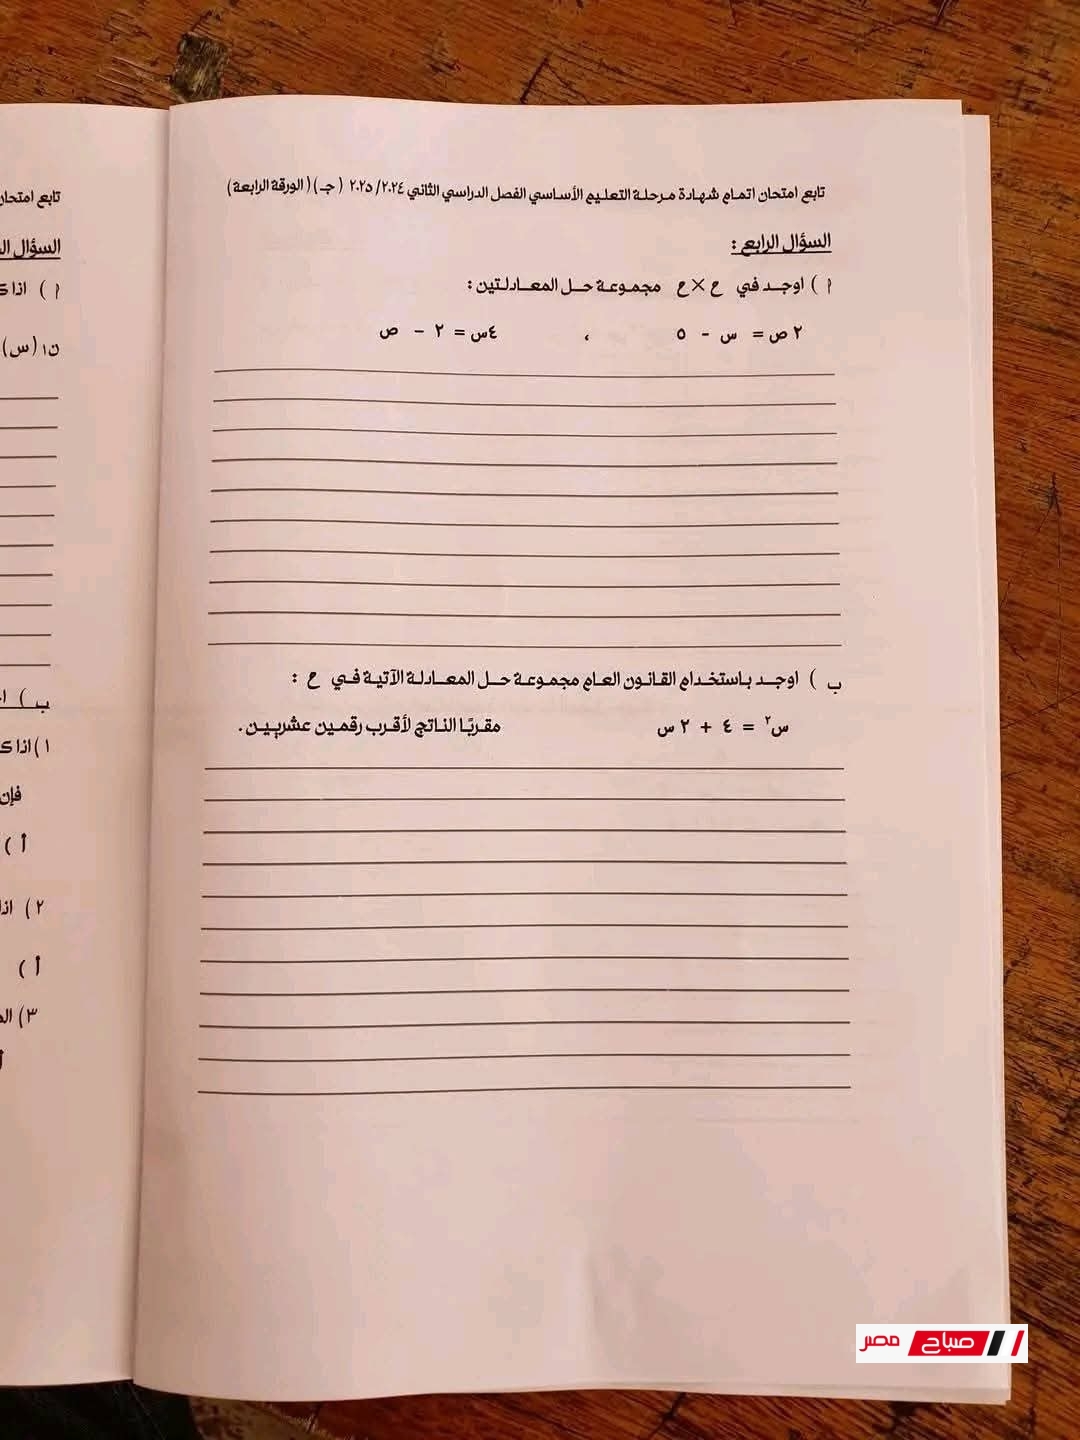 تابع امتحان اتمام شهادة مرحلة التعليم الأساسي الفصل الدراسي الثاني ٢٠٢٤/ ٢٠٢٥ ( جـ ) ( الورقة الرابعة )
السؤال الرابع :
٢ ) اوجد في ع × ع مجموعة حل المعادلتين :
٢ ص = س - ٥ ، ٤س = ٢ - ص
ب ) اوجد باستخدام القانون العام مجموعة حل المعادلة الآتية في ع :
س² = ٤ + ٢ س مقربًا الناتج لأقرب رقمين عشريين .
تابع امتحان
السؤال
٢ ) اذا
ن١ (س)
ب )
١ ) اذا
فإن
أ )
٢ ) اذا
أ )
٣ )
صباح مصر